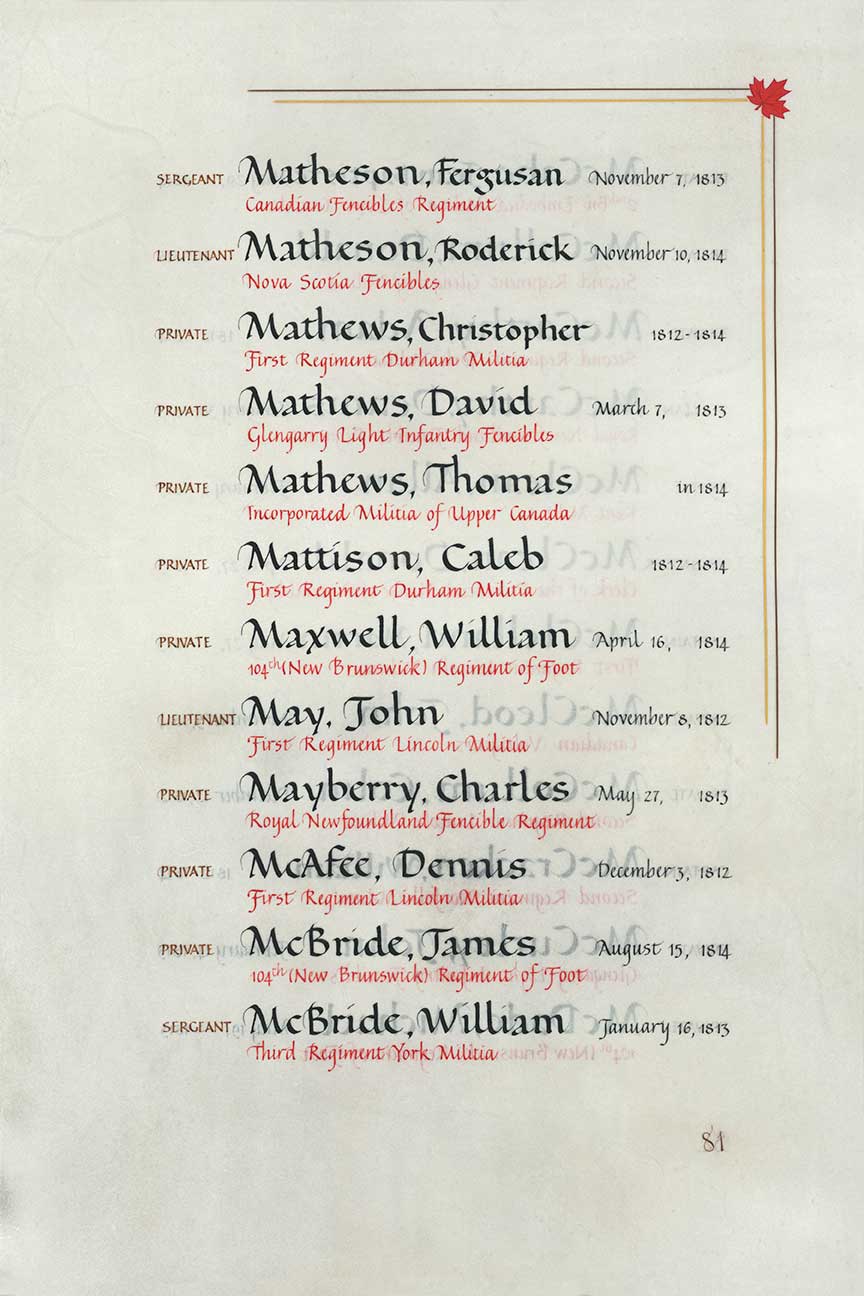 SERGEANT Matheson, Fergusan November 7, 1813
Canadian Fencibles Regiment
LIEUTENANT Matheson, Roderick November 10, 1814
Nova Scotia Fencibles
PRIVATE Mathews, Christopher 1812-1814
First Regiment Durham Militia
PRIVATE Mathews, David March 7, 1813
Glengarry Light Infantry Fencibles
PRIVATE Mathews, Thomas in 1814
Incorporated Militia of Upper Canada
PRIVATE Mattison, Caleb 1812-1814
First Regiment Durham Militia
PRIVATE Maxwell, William April 16, 1814
104th (New Brunswick) Regiment of Foot
LIEUTENANT May, John November 8, 1812
First Regiment Lincoln Militia
PRIVATE Mayberry, Charles May 27, 1813
Royal Newfoundland Fencible Regiment
PRIVATE McAfee, Dennis December 3, 1812
First Regiment Lincoln Militia
PRIVATE McBride, James August 15, 1814
104th (New Brunswick) Regiment of Foot
SERGEANT McBride, William January 16, 1813
Third Regiment York Militia
81